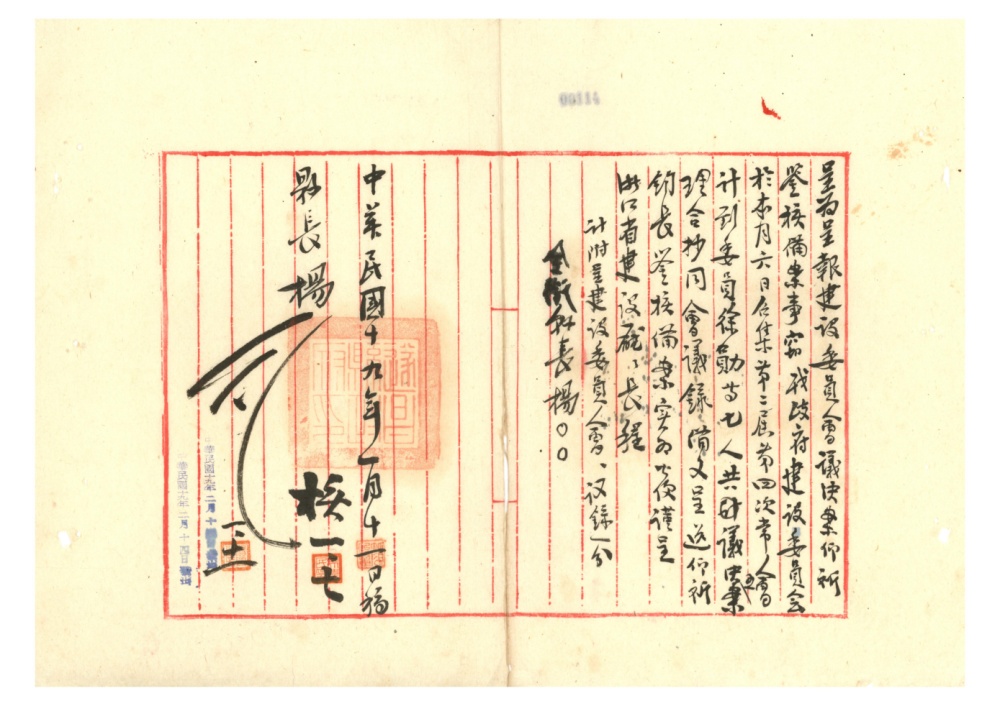 00114
呈為呈報建設委員會議決案仰祈
鑒核備案事竊我政府建設委員會
於本月六日召集第二屆第四次常會
計到委員徐勛等七人共計議決案
理合抄同會議錄備文呈送仰祈
鈞長鑒核備案實為公便謹呈
浙江省建設廳廳長程
計附呈建設委員會議錄一份
全銜縣長楊〇〇
中華民國十九年一月十一日稿
縣長楊
核一、七
華民國十九年二月十
華民國十九年二月十四日